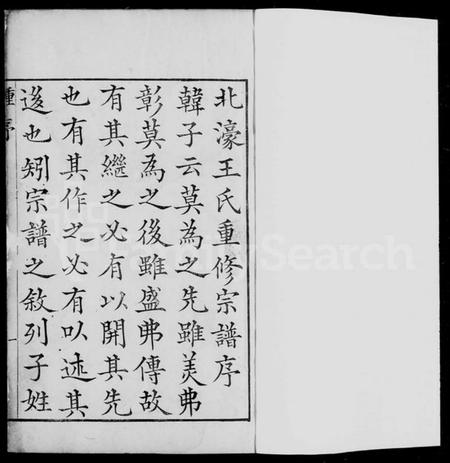 北濠王氏重修宗譜序
韓子云莫為之先雖羙弗
彰莫為之後雖盛弗傳故
有其繼之必有以開其先
也有其作之必有以述其
後也矧宗譜之敘列子姓
序
一